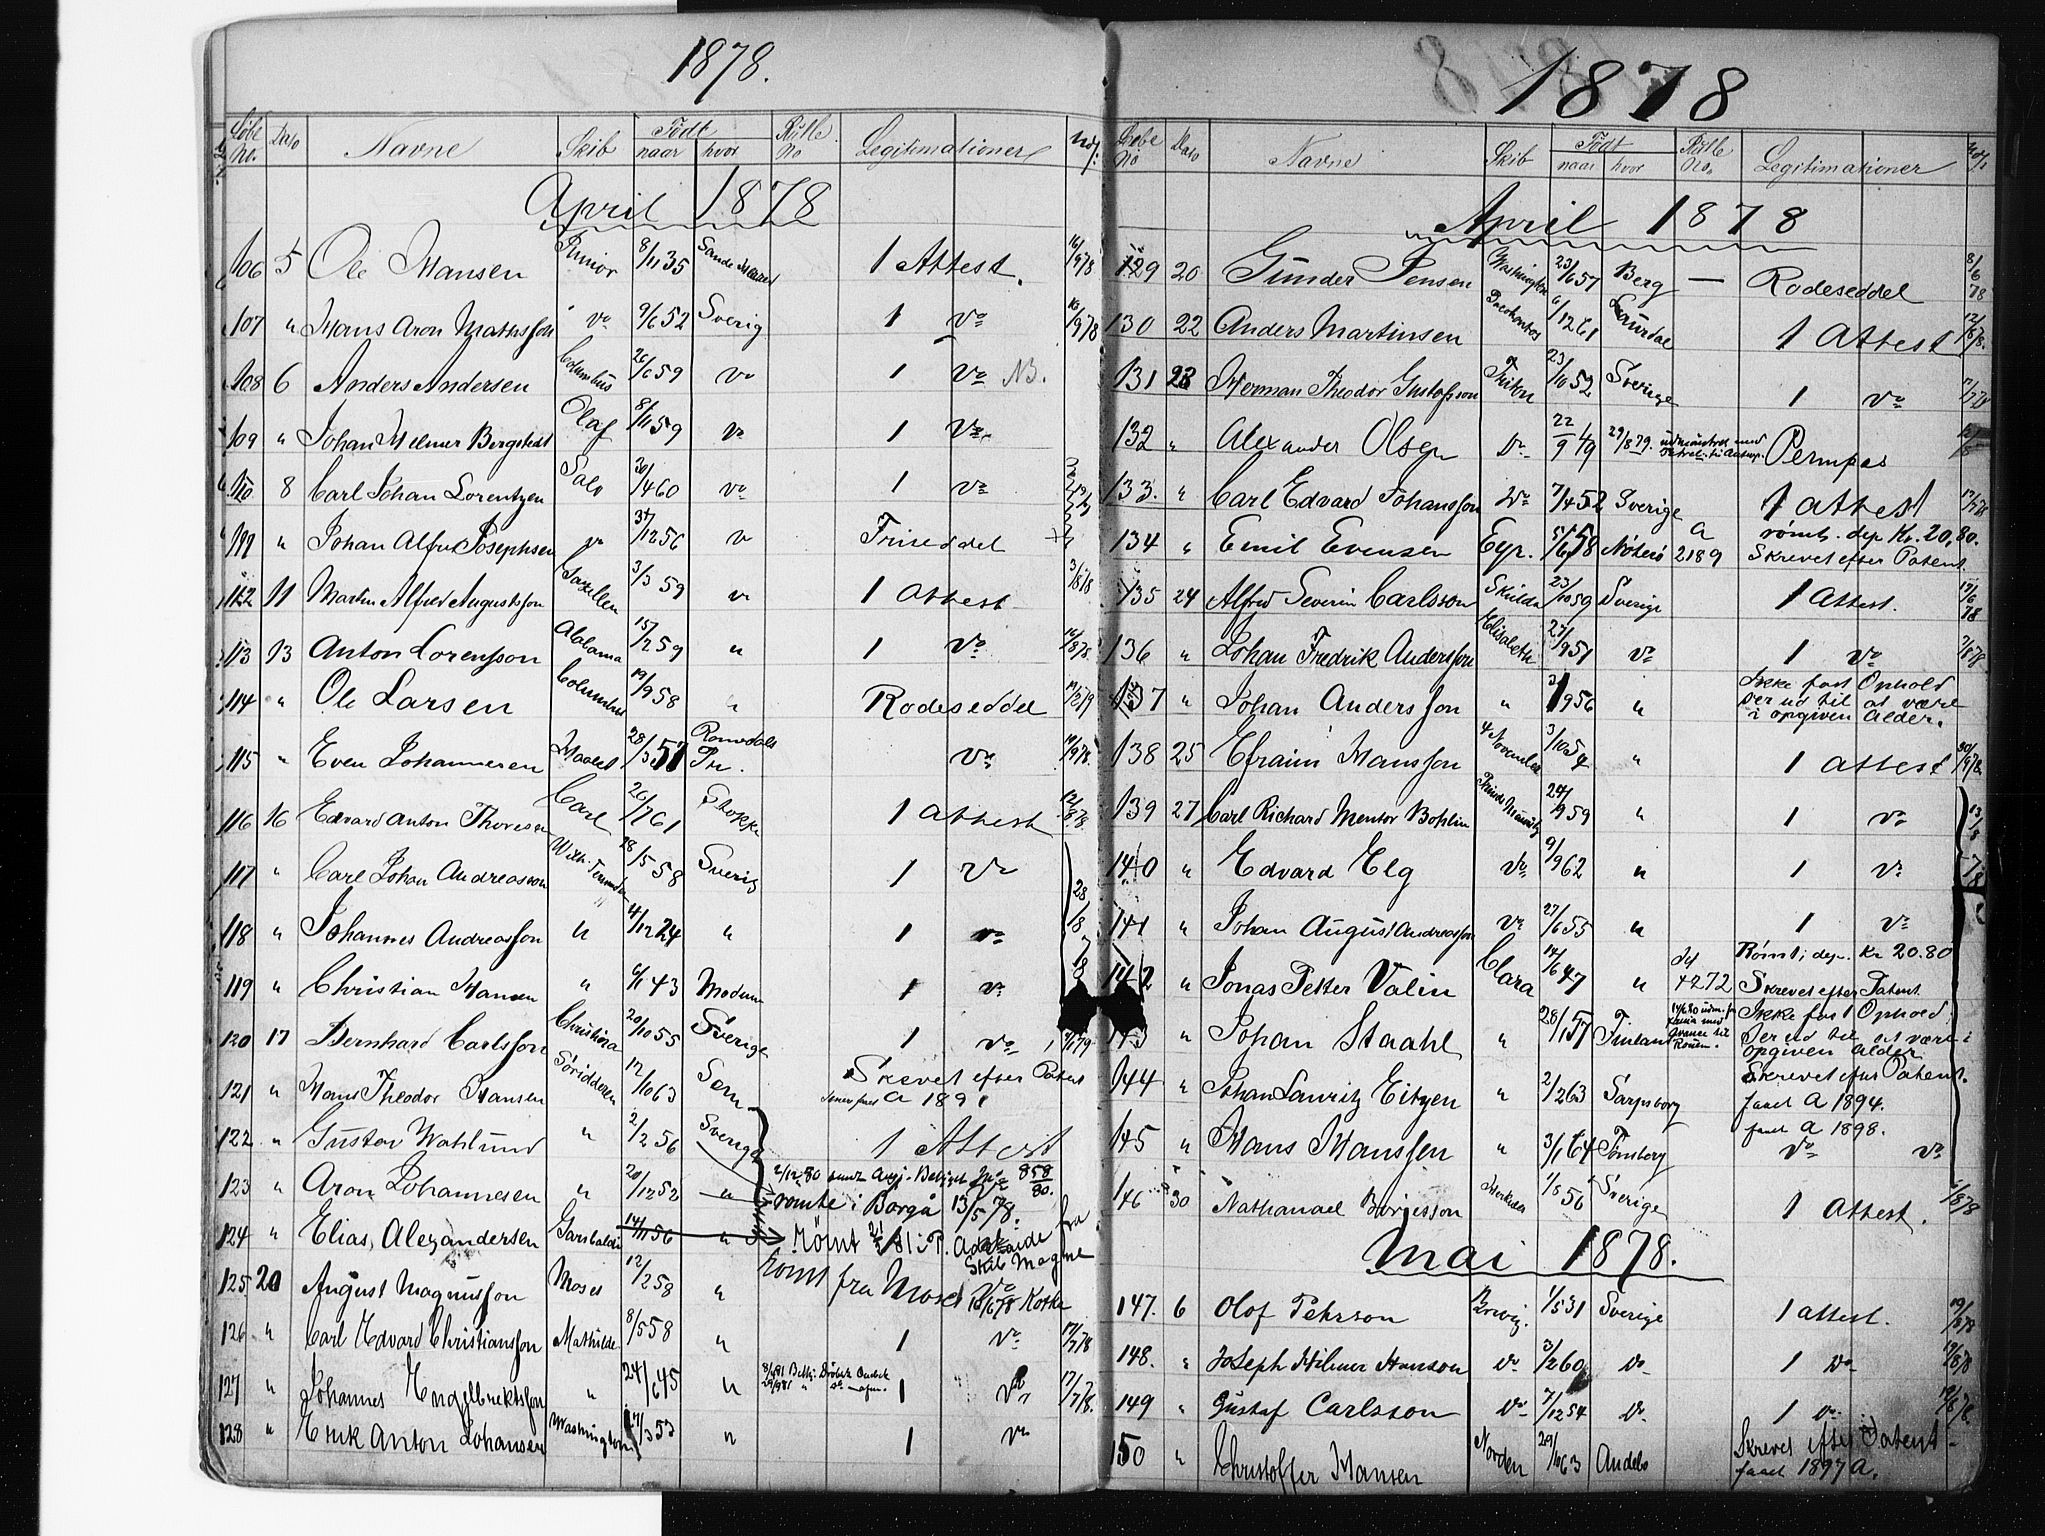 1878.
Løbe No. Dato Navne Skib Født naar hvor Rulle No Legitimationer
April 1878
106 5 Ole Hansen Junior 8/11 35 Sande 1 Attest. 16/9 78
107 " Hans Aron Mathisson do 9/6 52 Sverig 1 do
108 6 Anders Andersen Columbus 26/6 59 do 1 do NB.
109 " Johan Helmer Bergstedt Olaf 8/11 59 do 1 do
110 8 Carl Johan Lorentzen Salo 20/4 60 do 1 do
111 " Johan Alfred Josephsen do 31/12 56 do Friseddel
112 11 Martin Alfred Augustsson 3/3 59 do 1 Attest 3/8 78
113 13 Anton Lorensson Alabama 15/2 59 " 1 do 16/8 78.
114 " Ole Larsen Columbus 19/9 58 " Rodeseddel
115 " Even Johannesen Haabet 28/3 57 Romsdals Pr. do 19/9 78.
116 16 Edvard Anton Thoresen Carl 26/7 61 Stokke 1 Attest 12/8 78.
117 " Carl Johan Andreasson 28/5 58 Sverig 1 do
118 " Johannes Andreasson " 4/12 24 " 1 do 28/8 78
119 " Christian Hansen " 6/1 43 Modum 1 do
120 17 Bernhard Carlsson Christina 20/10 55 Sverige 1 do
121 " Hans Theodor Hansen Søridderen 12/10 63 Sem Skrevet efter Patent A 1891
122 " Gustav Wahlund " 2/2 56 Sverige 1 Attest
123 " Aron Johannesen " 20/12 52 " 2/12 80
rømte i Borgå 13/5 78.
124 " Elias Alexandersen Garibaldi 14/11 56 " Rømt 81 i P. Adelaide fra Skib Magne
125 20 August Magnusson Moses 12/2 58 " Rømt fra Moses Kotka
126 " Carl Edvard Christiansson Mathilde 8/5 58 " 1 do 17/7 78
127 " Johannes Engelbrektsson " 24/6 45 " 1 do 17/7 78.
128 " Erik Anton Johansen Washington 17/3 53 " 1 do
1878
Løbe No Dato Navne Skib Født naar hvor Rulle No. Legitimationer
April 1878
129 20 Gunder Jensen Washington 23/6 57 Berg — Rodeseddel 8/6 78
130 22 Anders Martinsen 6/12 61 Laurdal 1 Attest 12/8 78.
131 23 Herman Theodor Gustafsson Triton 23/10 52 Sverige 1 do
132 " Alexander Olsen do 22/9 49 29/8 79. udmønstret med Permpas
133. " Carl Edvard Johansson do 7/4 52 Sverige 1 attest
134 " Emil Evensen Eyr. 5/6 58 Nøterø A 2189 rømt. dep Kr. 20,80. Skrevet efter Patent.
135 24 Alfred Severin Carlsson Skulda 23/10 59 Sverige 1 Attest.
136 " Johan Fredrik Andersson Elisabeth 27/9 51 do 1 do 2/8 78
137 " Johan Andersson " 9 56 " Ikke fast Ophold Ser ud til at være i opgiven Alder.
138 25 Efraim Hansson 4 November 3/10 54 " 1 attest 30/9 78.
139 27 Carl Richard Mentor Bohlin Prinds Mauritz 24/9 59 " 1 do 13/8 78
140 " Edvard Elg do 9/9 62 " 1 do
141 " Johan August Andreasson do 27/6 55 " 1 do
142 " Jonas Petter Valin Clara 14/6 47 " 4272 Rømt, dep. Kr 20.80 Skrevet efter Patent.
143 " Johan Staahl " 28/1 57 Finland Ikke fast Ophold. Ser ud til at være i opgiven Alder
144 " Johan Lauritz Eitzen " 2/2 63 Sarpsborg Skrevet efter Patent. faaet A 1894.
145 " Hans Hanssen " 3/1 64 Tønsberg faaet A 1898. do do
146 30 Nathanael Børjesson 1/8 56 Sverige 1 Attest. 1/8 78
Mai 1878.
147. 6 Olof Pehrson Brevig. 1/5 31 Sverige 1 attest. 19/8 78
148. " Joseph Hilmer Hanson do 3/2 60 do 1 do 19/8 78
149 " Gustaf Carlsson do 7/12 54 do 1 do 19/8 78.
150 " Christoffer Hansen Norden 29/10 63 Andebo Skrevet efter Patent. faaet 1897 A.